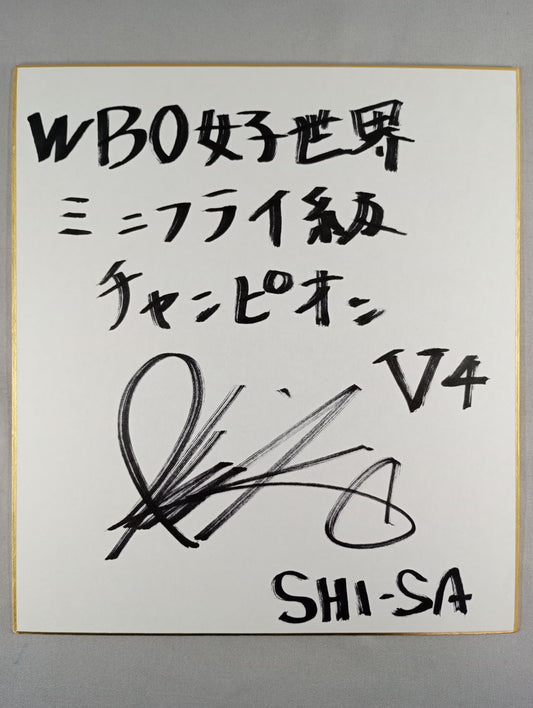 WBO女子世界
ミニフライ級
チャンピオン
V4
SHI-SA